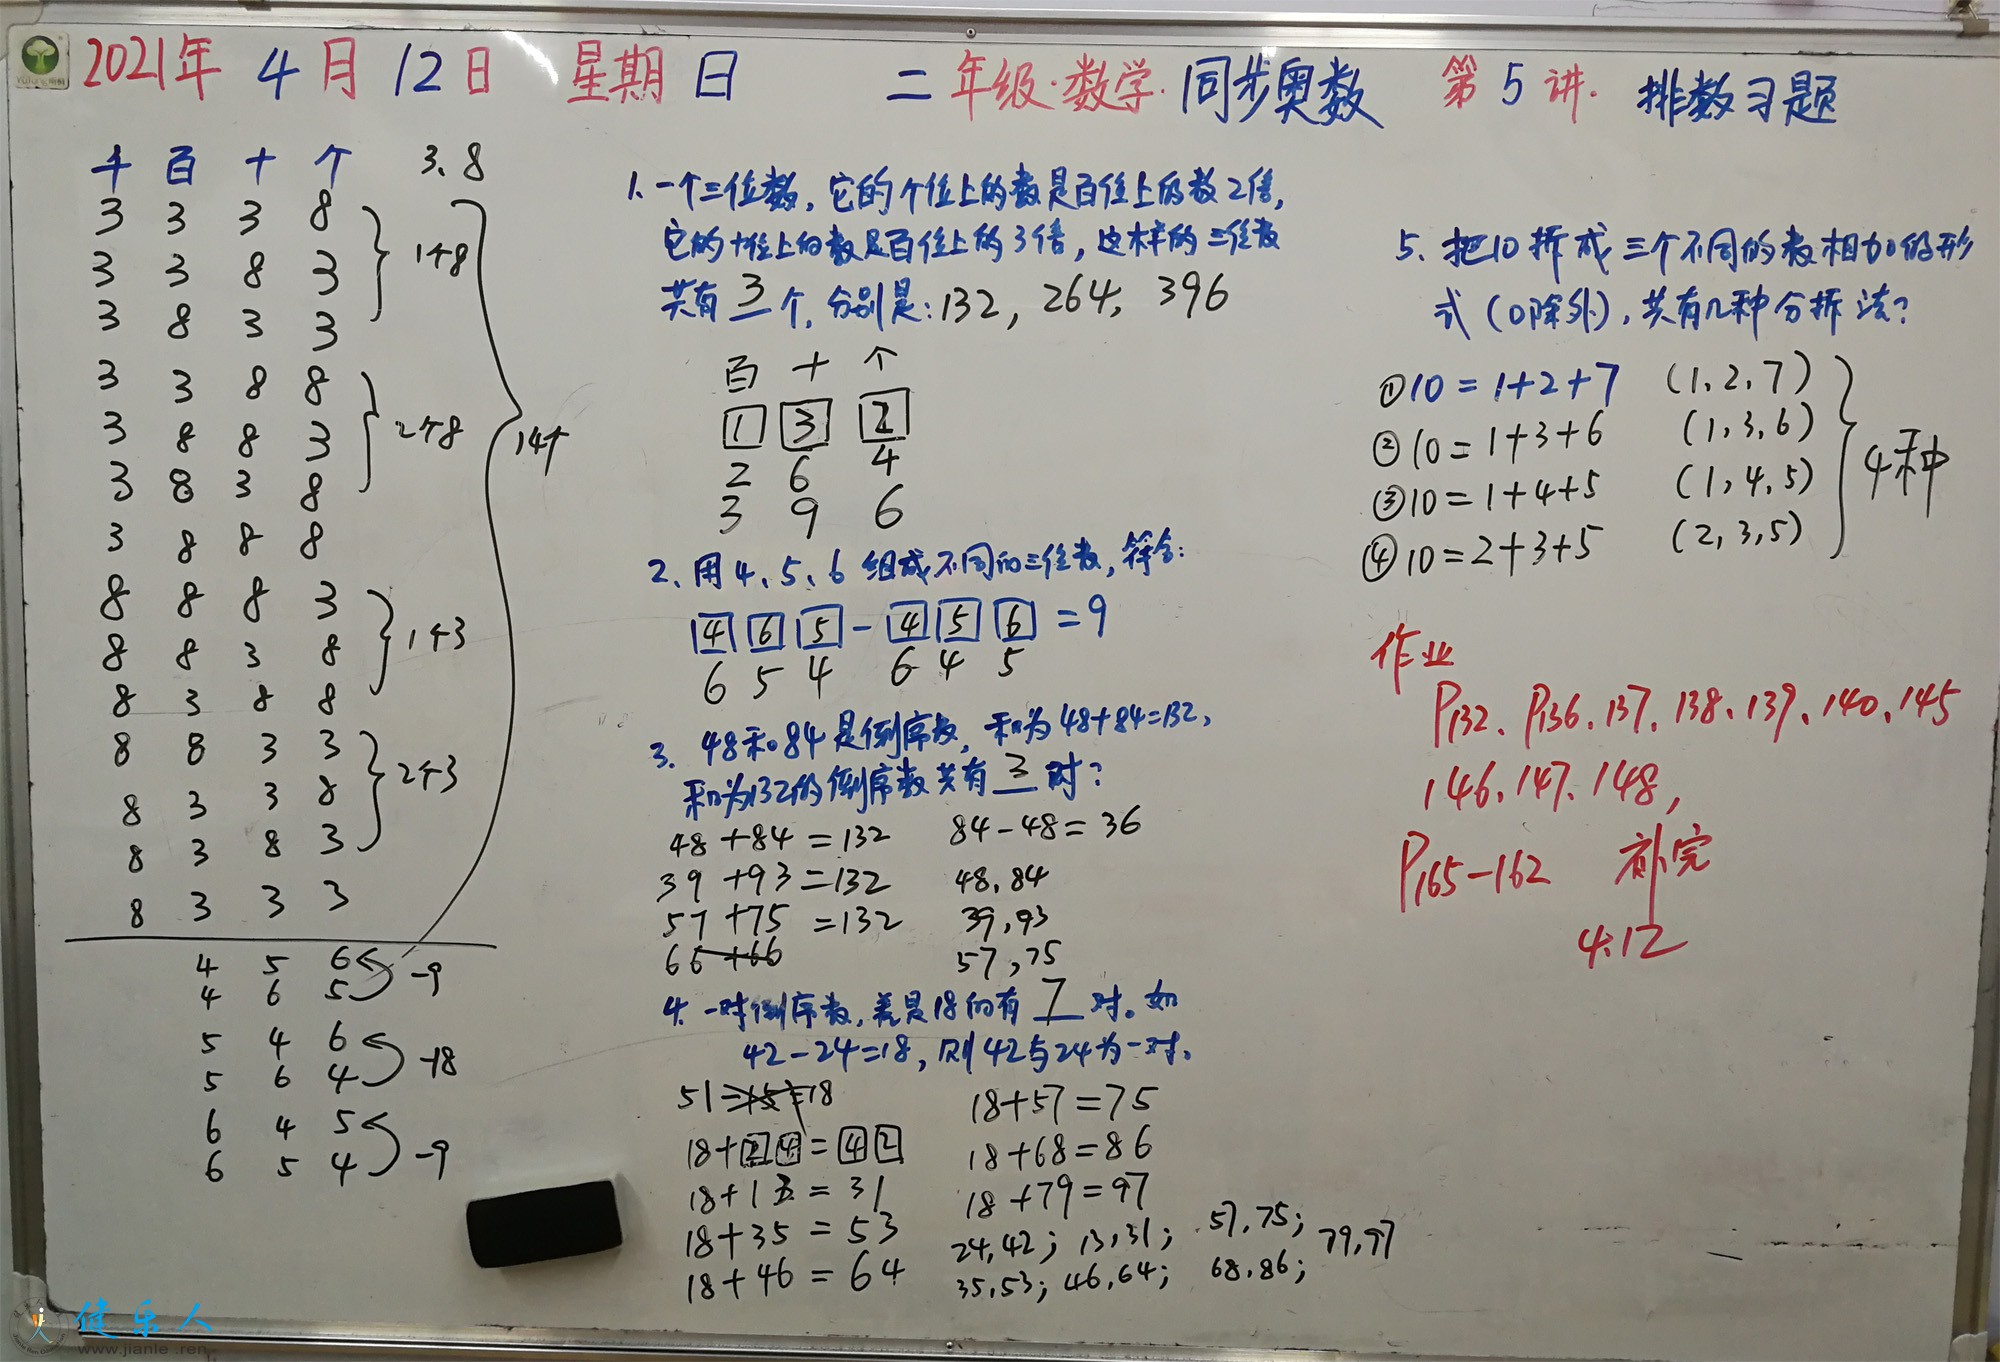 2021年 4月 12日 星期日 二年级·数学·同步奥数 第5讲. 排数习题
千 百 十 个 3、8
3 3 3 8
3 3 8 3 1个8
3 8 3 3
3 3 8 8
3 8 8 3 2个8
3 8 3 8
3 8 8 8
14个
8 8 8 3
8 8 3 8 1个3
8 3 8 8
8 8 3 3
8 3 3 8 2个3
8 3 8 3
8 3 3 3
4 5 6
4 6 5 -9
5 4 6
5 6 4 -18
6 4 5
6 5 4 -9
1. 一个三位数, 它的个位上的数是百位上的数2倍,
它的十位上的数是百位上的3倍, 这样的三位数
共有 3 个, 分别是: 132, 264, 396
百 十 个
1 3 2
2 6 4
3 9 6
2、用4、5、6 组成不同的三位数, 符合:
4 6 5 - 4 5 6 = 9
6 5 4 6 4 5
3. 48和84是倒序数, 和为48+84=132,
和为132的倒序数共有 3 对?
48+84=132 84-48=36
39+93=132 48,84
57+75=132 39,93
66+66 57,75
4. 一对倒序数, 差是18的有 7 对。如
42-24=18, 则42与24为一对.
51-15=18 18+57=75
18+24=42 18+68=86
18+13=31 18+79=97
18+35=53 24,42; 13,31; 57,75; 79,97
18+46=64 35,53; 46,64; 68,86;
5. 把10拆成三个不同的数相加的形
式(0除外), 共有几种分拆法?
①10=1+2+7 (1,2,7)
②10=1+3+6 (1,3,6)
③10=1+4+5 (1,4,5)
④10=2+3+5 (2,3,5)
4种
作业
P132、P136、137、138、139、140、145
146、147、148,
P165-162 补完
4.12
健乐人
www.jianle.ren